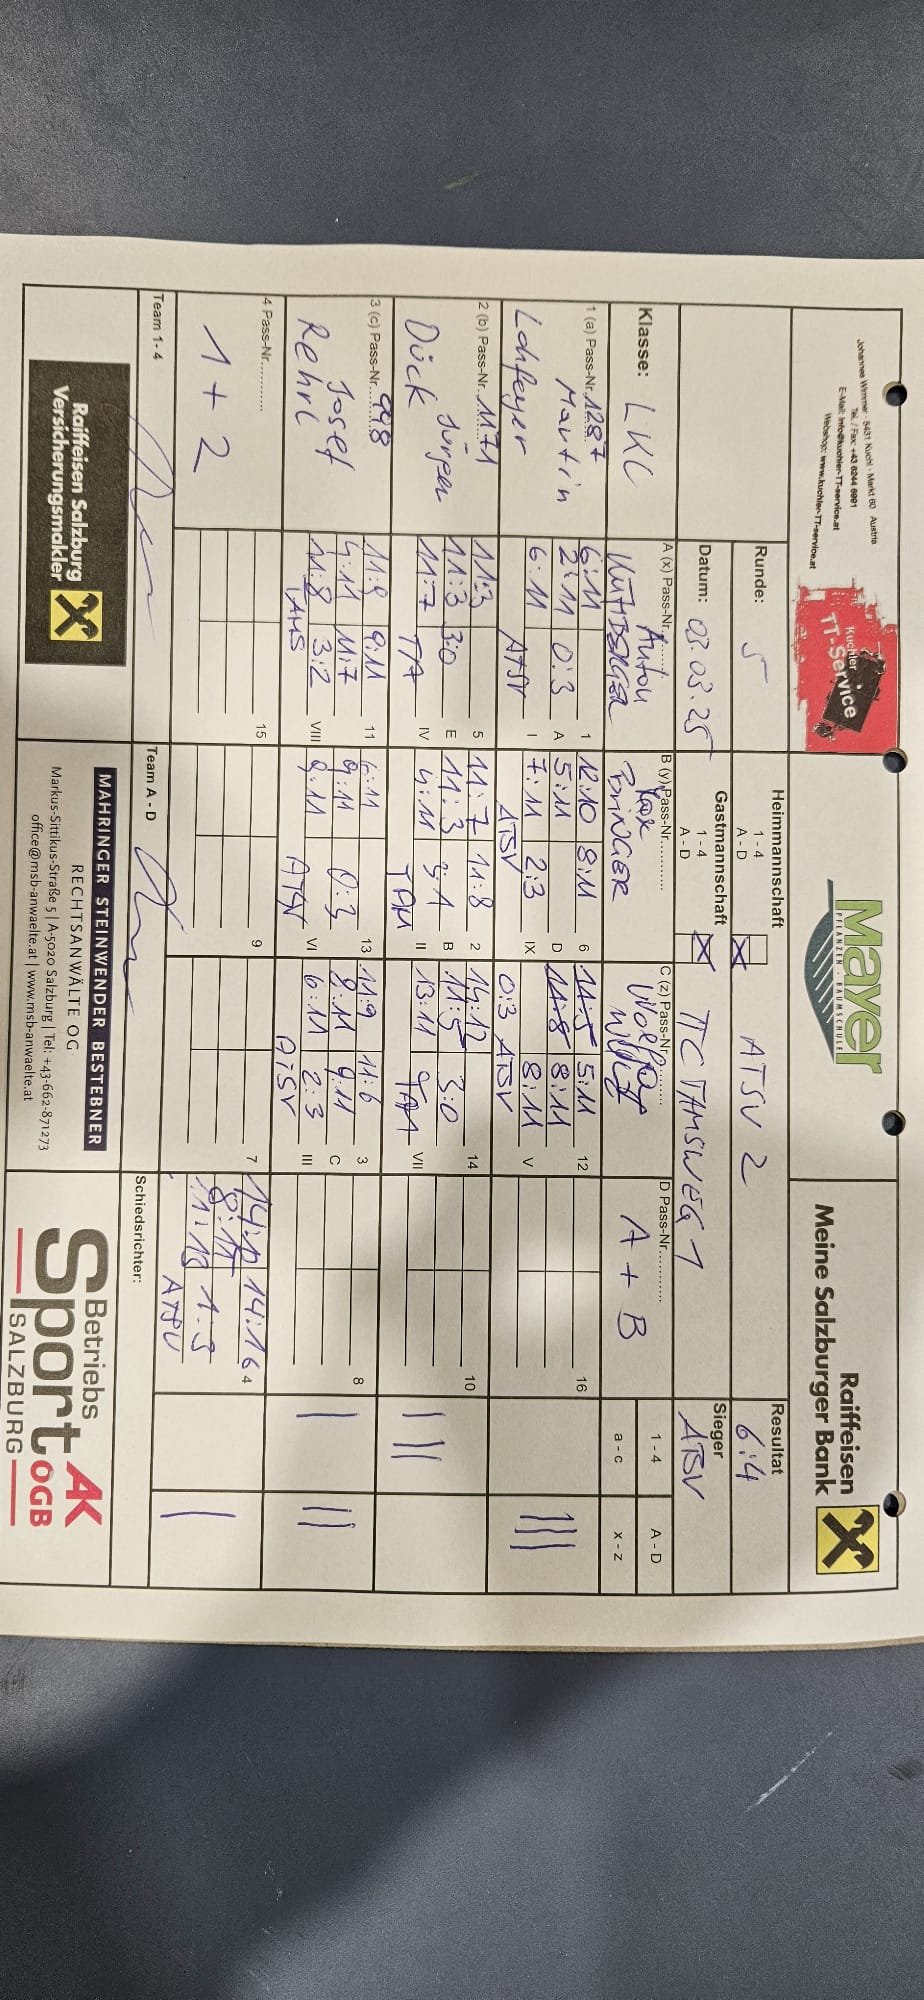 Johannes Wimmer · 5431 Kuchl · Markt 60 Austria
Tel. / Fax: +43 6244 6991
E-Mail: info@kuchler-TT-service.at
Webshop: www.kuchler-TT-service.at
Kuchler
TT-Service
Mayer
PFLANZEN · BAUMSCHULE
Raiffeisen
Meine Salzburger Bank
Runde: 5
Heimmannschaft
1 - 4
A - D
ATSV 2
Resultat
6:4
Datum: 03.03.25
Gastmannschaft
1 - 4
A - D
TTC TAMSWEG 1
Sieger
ATSV
Klasse: LKC
A (x) Pass-Nr.
Anton
B (y) Pass-Nr.
C (z) Pass-Nr.
D Pass-Nr.
A + B
1 - 4
A - D
a - c
x - z
1 (a) Pass-Nr. 1287
Martin
6:11
1
2:11 0:3
A
6:11 ATSV
I
12:10 8:11
6
5:11
D
7:11 2:3
IX
ATSV
11:5 5:11
12
11:8 8:11
8:11
V
0:3 ATSV
16
III
2 (b) Pass-Nr. 1171
Jürgen
Dück
11:3
5
11:3 3:0
E
11:7
IV
11:7 11:8
2
11:3 3:1
B
4:11 TAM
II
14:12
14
11:5 3:0
13:11
VII
10
III
3 (c) Pass-Nr. 998
Josef
Rehrl
11:9 9:11
11
4:11 11:7
11:8 3:2
VIII
TAMS
6:11
13
9:11 0:3
9:11 ATSV
VI
11:9 11:6
3
8:11 9:11
C
6:11 2:3
III
ATSV
8
I
II
4 Pass-Nr.
1 + 2
15
9
7
14:12 14:16
4
8:11
11:13 1:3
ATSV
I
Team 1- 4
Team A - D
Schiedsrichter:
Raiffeisen Salzburg
Versicherungsmakler
MAHRINGER STEINWENDER BESTEBNER
RECHTSANWÄLTE OG
Markus-Sittikus-Straße 5 | A-5020 Salzburg | Tel: +43-662-871273
office@msb-anwaelte.at | www.msb-anwaelte.at
Betriebs
Sport
AK
ÖGB
SALZBURG